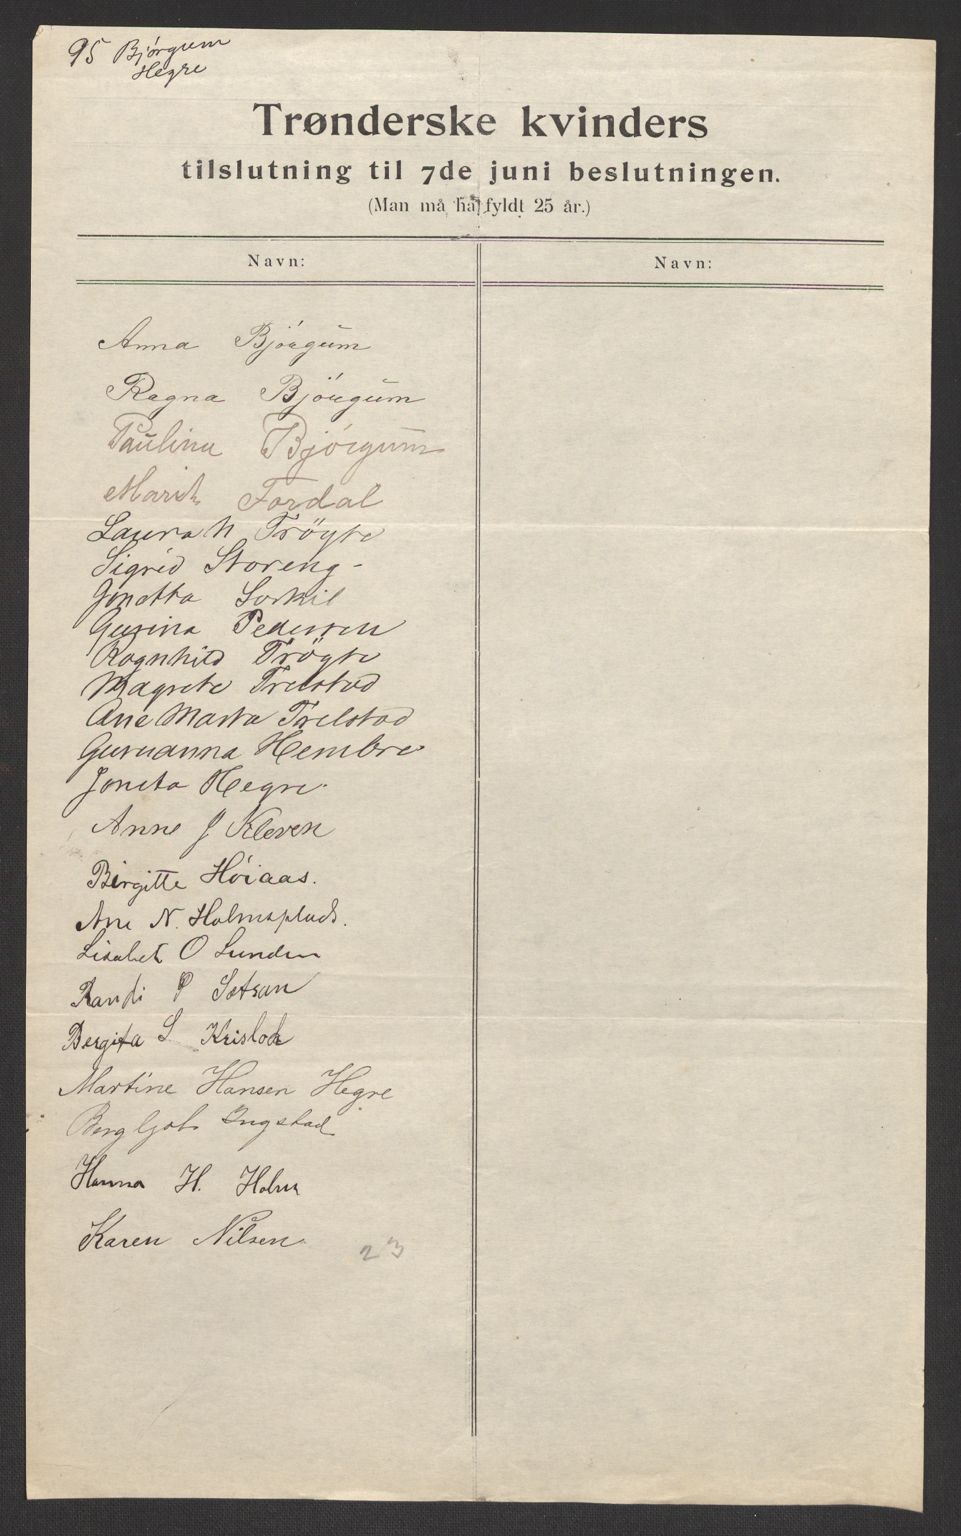 95 Bjørgum
Hegre
Trønderske kvinders
tilslutning til 7de juni beslutningen.
(Man må ha fyldt 25 år.)
Navn:
Navn:
Anna Bjórgum
Ragna Bjórgum
Paulina Bjórgum
Marit Fordal
Laura N Tröyte
Sigrid Storeng -
Jonetta Sorkil
Gurina Pedersen
Ragnhild Tröyte
Magrete Trelstad
Ane Marta Trelstad
Guruanna Hembre
Joneta Hegre.
Anne J Kleven
Birgitte Hóiaas.
Ane N. Holmsplads.
Lisabet O Lunden
Randi P Sætran
Bergita S.
Martine Hansen Hegre
Bergljot Ingstad
Hanna H. Holm
Karen Nilsen.
23